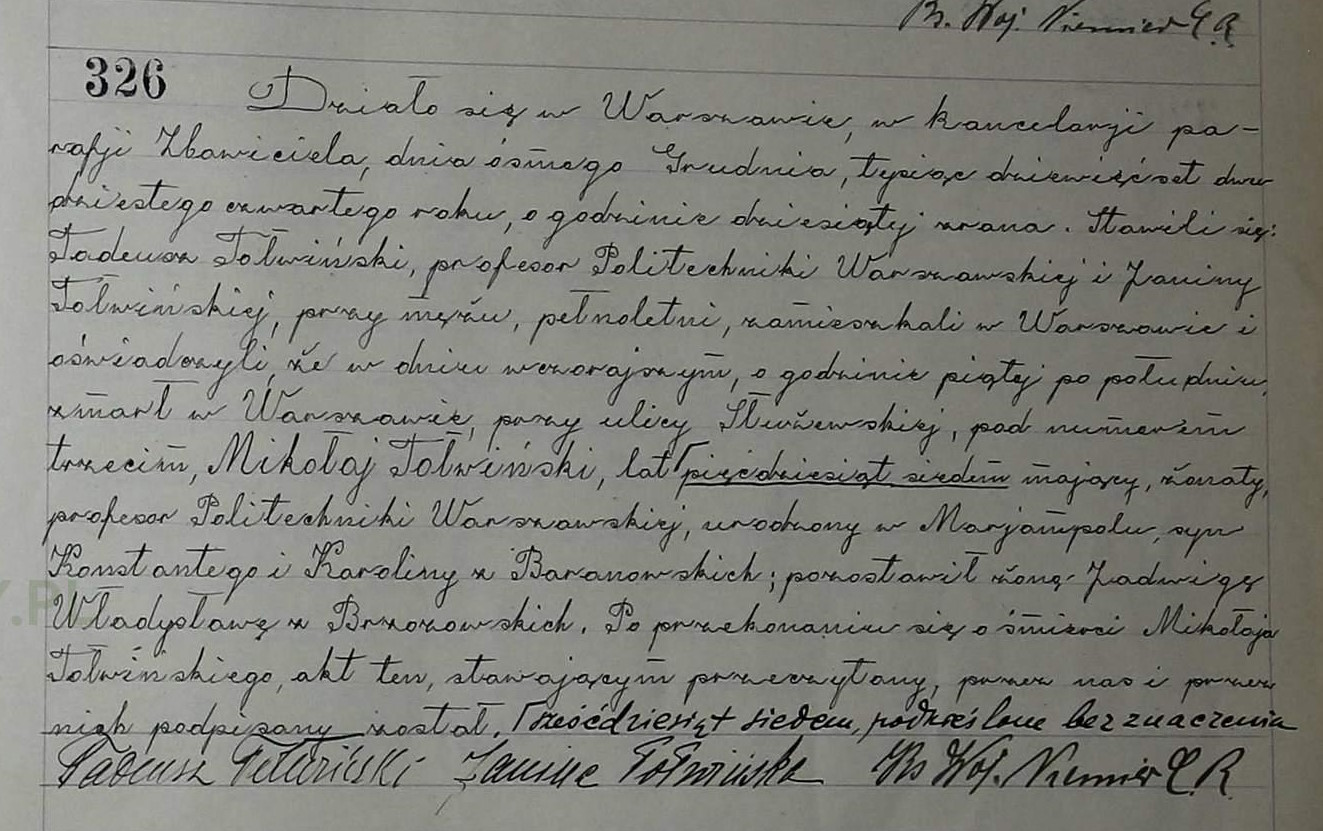 Ks. Woj. Niemier
326 Działo się w Warszawie, w kancelarji pa-
rafji Zbawiciela, dnia ósmego Grudnia, tysiąc dziewięćset dwu
dziestego czwartego roku, o godzinie dziesiątej zrana. Stawili się:
Tadeusz Tołwiński, profesor Politechniki Warszawskiej i Janiny
Tołwińskiej, przy mężu, pełnoletni, zamieszkali w Warszawie i
oświadczyli, że w dniu wczorajszym, o godzinie piątej po południu,
zmarł w Warszawie, przy ulicy Służewskiej, pod numerem
trzecim, Mikołaj Tołwiński, lat ⌈pięćdziesiąt siedem mający, żonaty,
profesor Politechniki Warszawskiej, urodzony w Marjampolu, syn
Konstantego i Karoliny z Baranowskich; pozostawił żonę Jadwigę
Władysławę z Brzozowskich. Po przekonaniu się o śmierci Mikołaja
Tołwińskiego, akt ten, stawającym przeczytany, przez nas i przez
nich podpisany został. ⌈sześćdziesiąt siedem, podkreślone bez znaczenia
Tadeusz Tołwiński Janina Tołwińska Ks Woj. Niemier